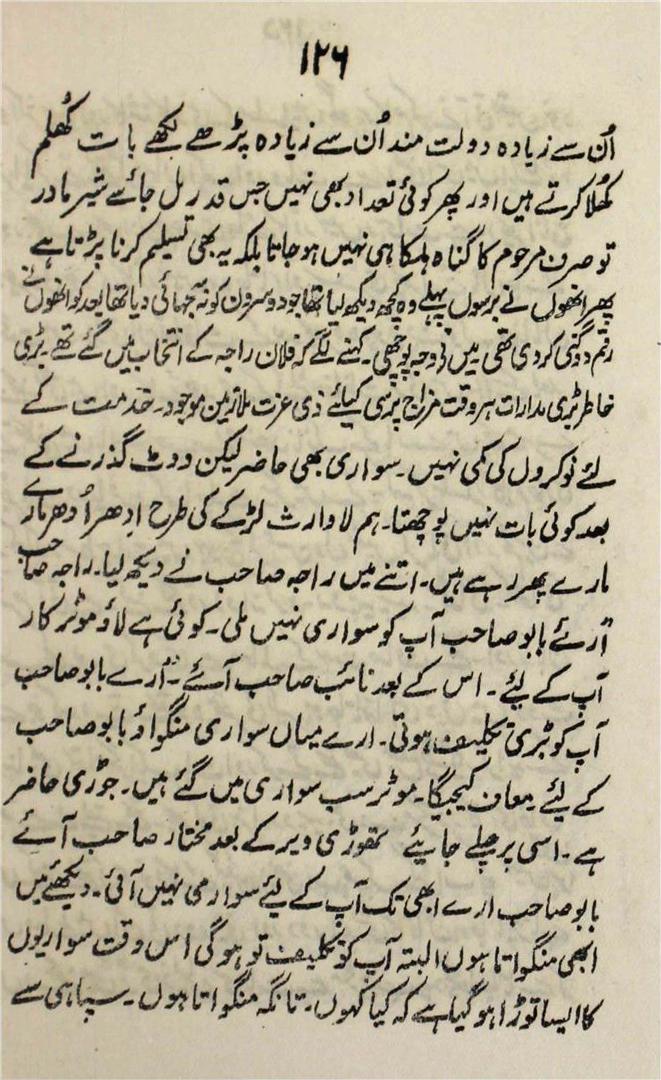 ۱۲۶
اُن سے زیادہ دولت مند اُن سے زیادہ پڑھے لکھے بات کھُلم
کھُلا کرتے ہیں اور پھر کوئی تعداد بھی نہیں جس قدر مل جائے شیر مادر
تو صرف مرحوم کا گناہ ہلکا ہی نہیں ہو جاتا بلکہ یہ بھی تسلیم کرنا پڑتا ہے
پھر انھوں نے برسوں پہلے وہ کچھ دیکھ لیا تھا جو دوسرون کو نہ سجھائی دیا تھا بعد کو انھوں نے
رقم دوگنی کر دی تھی میں نے وجہ پوچھی۔ کہنے لگے کہ فلان راجہ کے انتخاب میں گئے تھے۔ بڑی
خاطر بڑی مدارات ہر وقت مزاج پرسی کیلئے ذی عزت ملازمین موجود۔ خدمت کے
لئے نوکروں کی کمی نہیں۔ سواری بھی حاضر لیکن ووٹ گذرنے کے
بعد کوئی بات نہیں پوچھتا۔ ہم لاوارث لڑکے کی طرح اِدھر اُدھر مارے
مارے پھر رہے ہیں۔ اتنے میں راجہ صاحب نے دیکھ لیا۔ راجہ صاحب
"ارئے بابو صاحب آپ کو سواری نہیں ملی۔ کوئی ہے لاؤ موٹر کار
آپ کے لئے۔ اس کے بعد نائب صاحب آئے۔ "ارے بابو صاحب
آپ کو بڑی تکلیف ہوئی۔ ارے میاں سواری منگواؤ بابو صاحب
کے لئے معاف کیجیگا۔ موٹر سب سواری میں گئے ہیں۔ جوڑی حاضر
ہے۔ اسی پر چلے جایئے تھوڑی دیر کے بعد مختار صاحب آئے
بابو صاحب ارے ابھی تک آپ کے لئے سواری نہیں آئی۔ دیکھئے میں
ابھی منگواتا ہوں البتہ آپ کو تکلیف تو ہو گی اس وقت سواریوں
کا ایسا توڑا ہو گیا ہے کہ کیا کہوں۔ تانگہ منگواتا ہوں۔ سپاہی سے